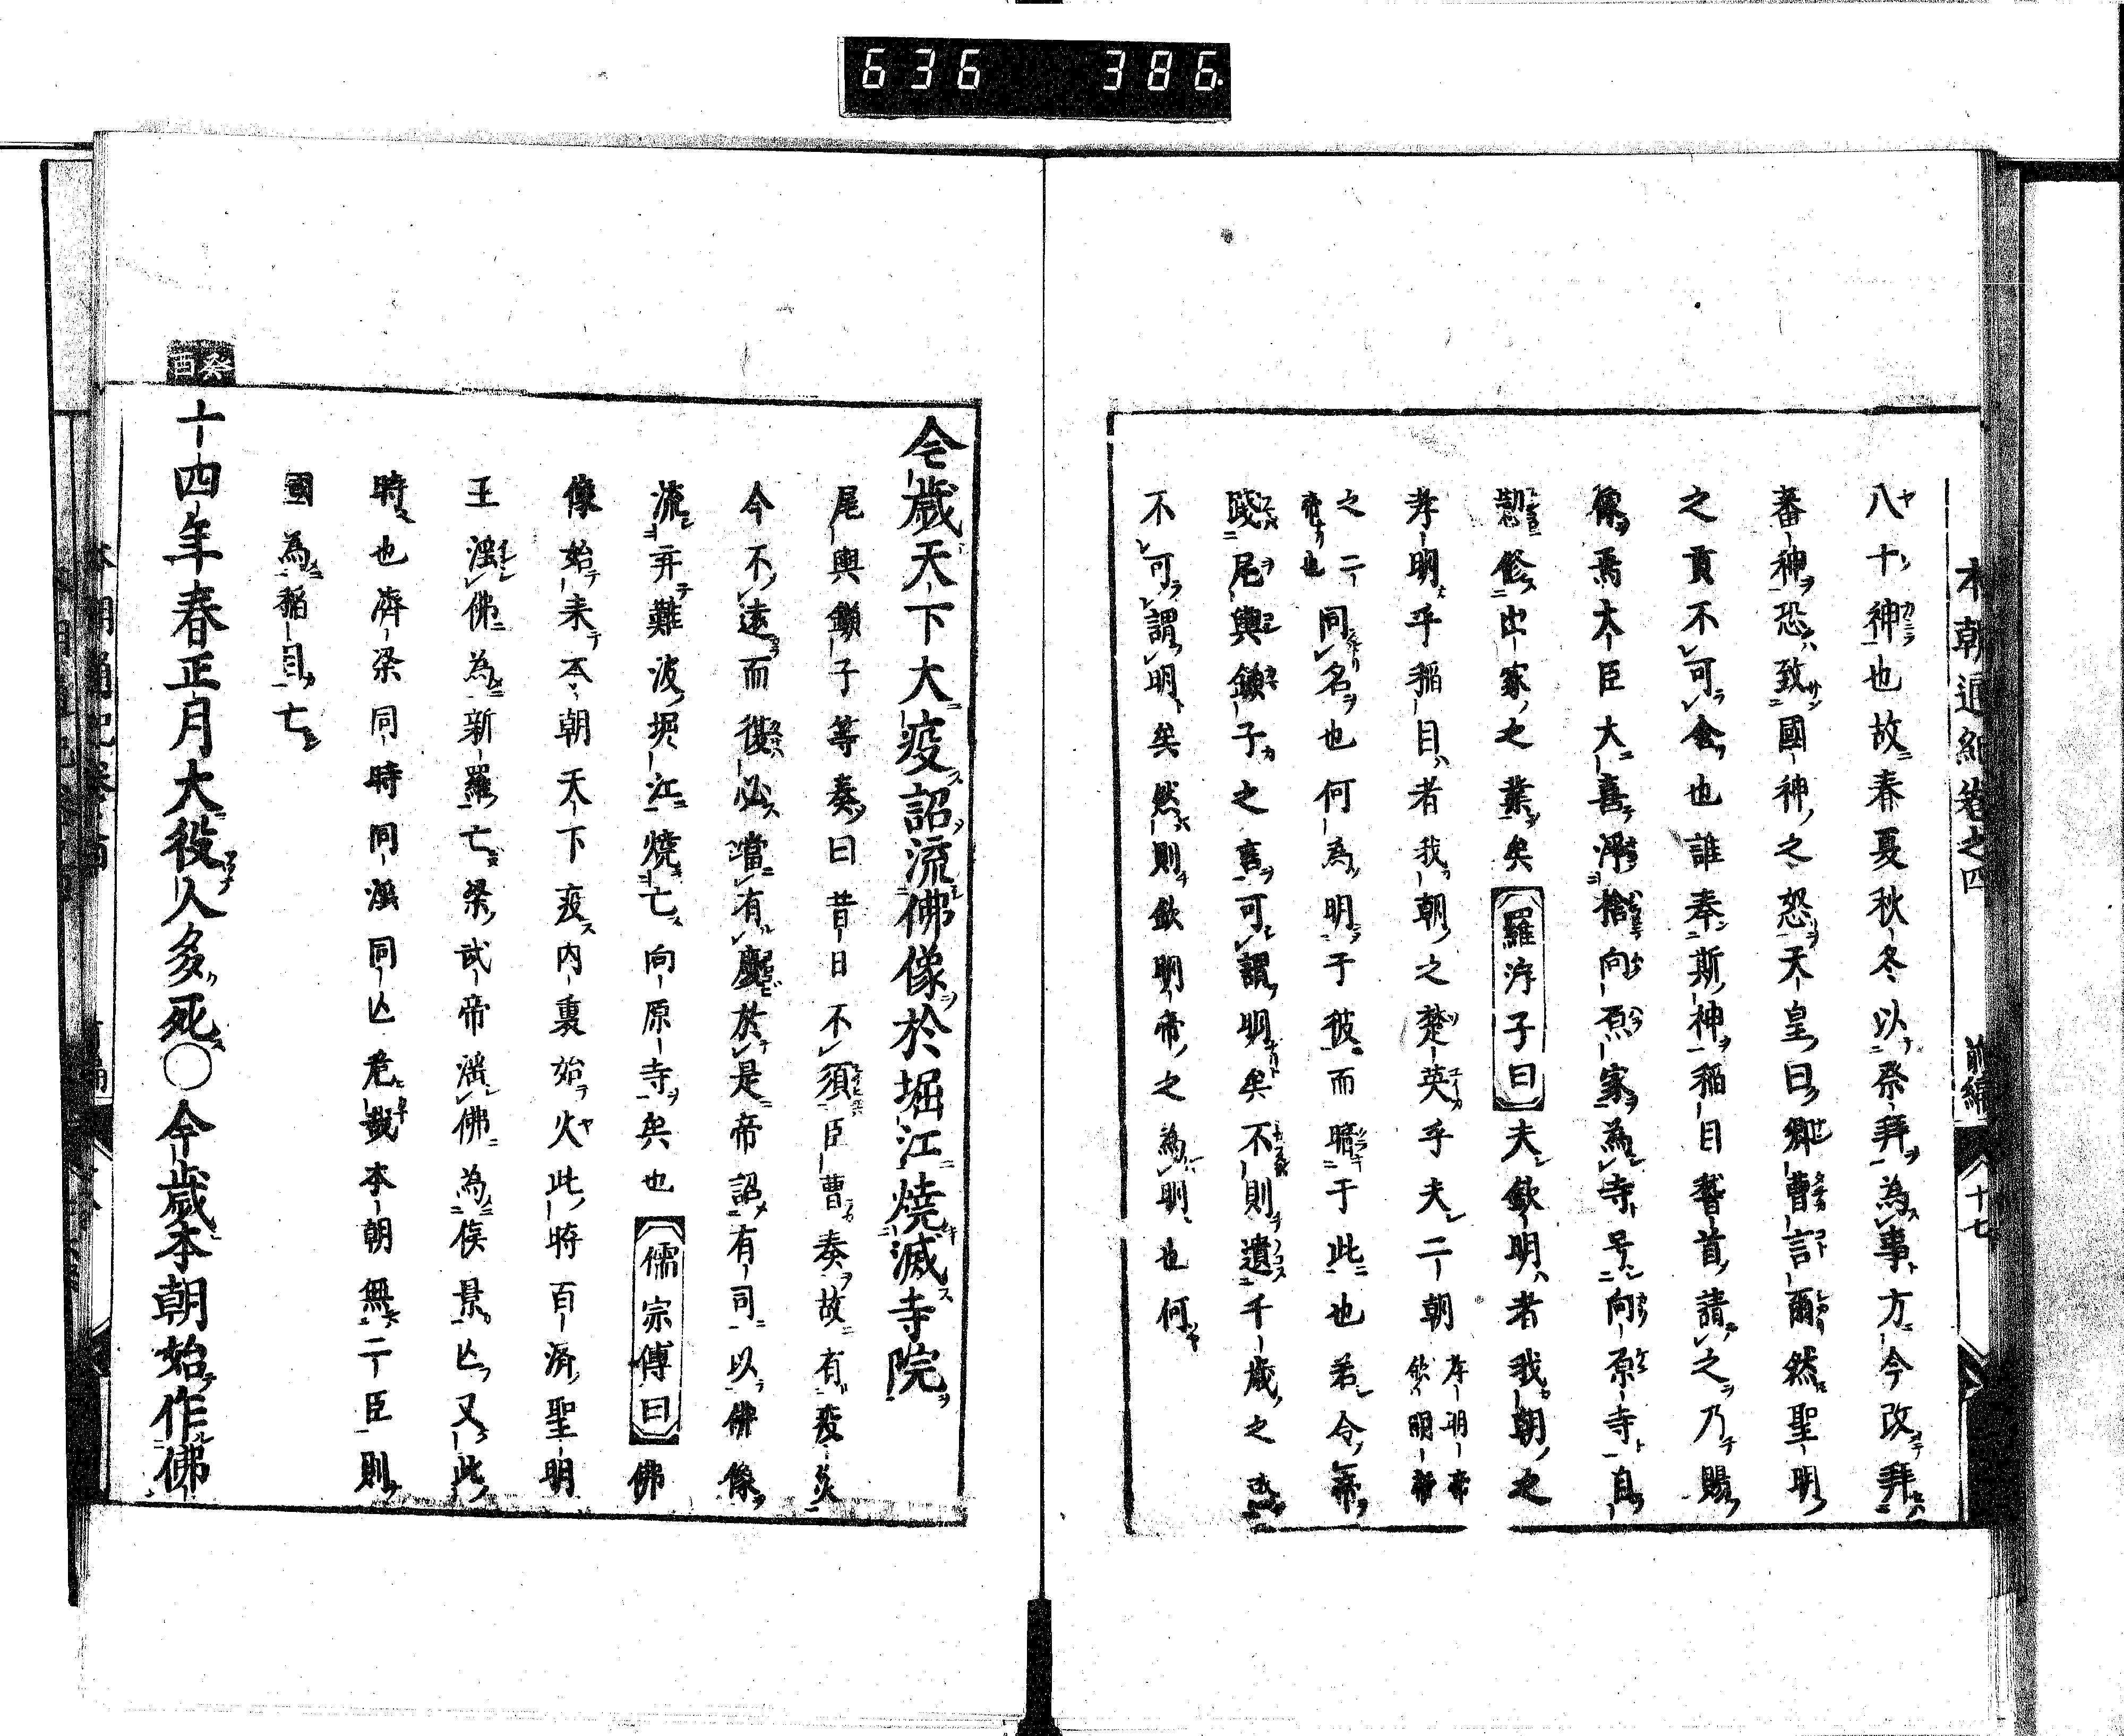 636 386
本朝通紀卷之四 前編 八十七
八十神也故春夏秋冬以祭拜為事方今改拜
蕃神恐致國神之怒天皇曰卿曹言爾然聖明
之貢不可舍也誰奉斯神稲目誓首請之乃賜
像焉大臣大喜淨捨向原家為寺号向原寺自
懃修出家之業矣羅浮子曰夫欽明者我朝之
孝明乎稲目者我朝之楚英乎夫二朝孝明帝欽明帝
之二帝也同名也何為明于彼而暗于此也若令帝
踐尾輿鎌子之言可謂明矣不則遺千歳之
不可謂明矣然則欽明帝之為明也何
今歳天下大疫詔流佛像於堀江燒滅寺院
尾輿鎌子等奏曰昔日不須臣曹奏故有疫災
今不遠而復必當有慶於是帝詔有司以佛像
流弃難波堀江燒亡向原寺矣也儒宗傳曰佛
像始来本朝天下疫内裏始火此時百済聖明
王溺佛為新羅亡梁武帝溺佛為侯景亡又此
時也濟梁同時同溺同亡危哉本朝無二臣則
國為稲目亡
癸酉
十四年春正月大役人多死〇今歳本朝始作佛